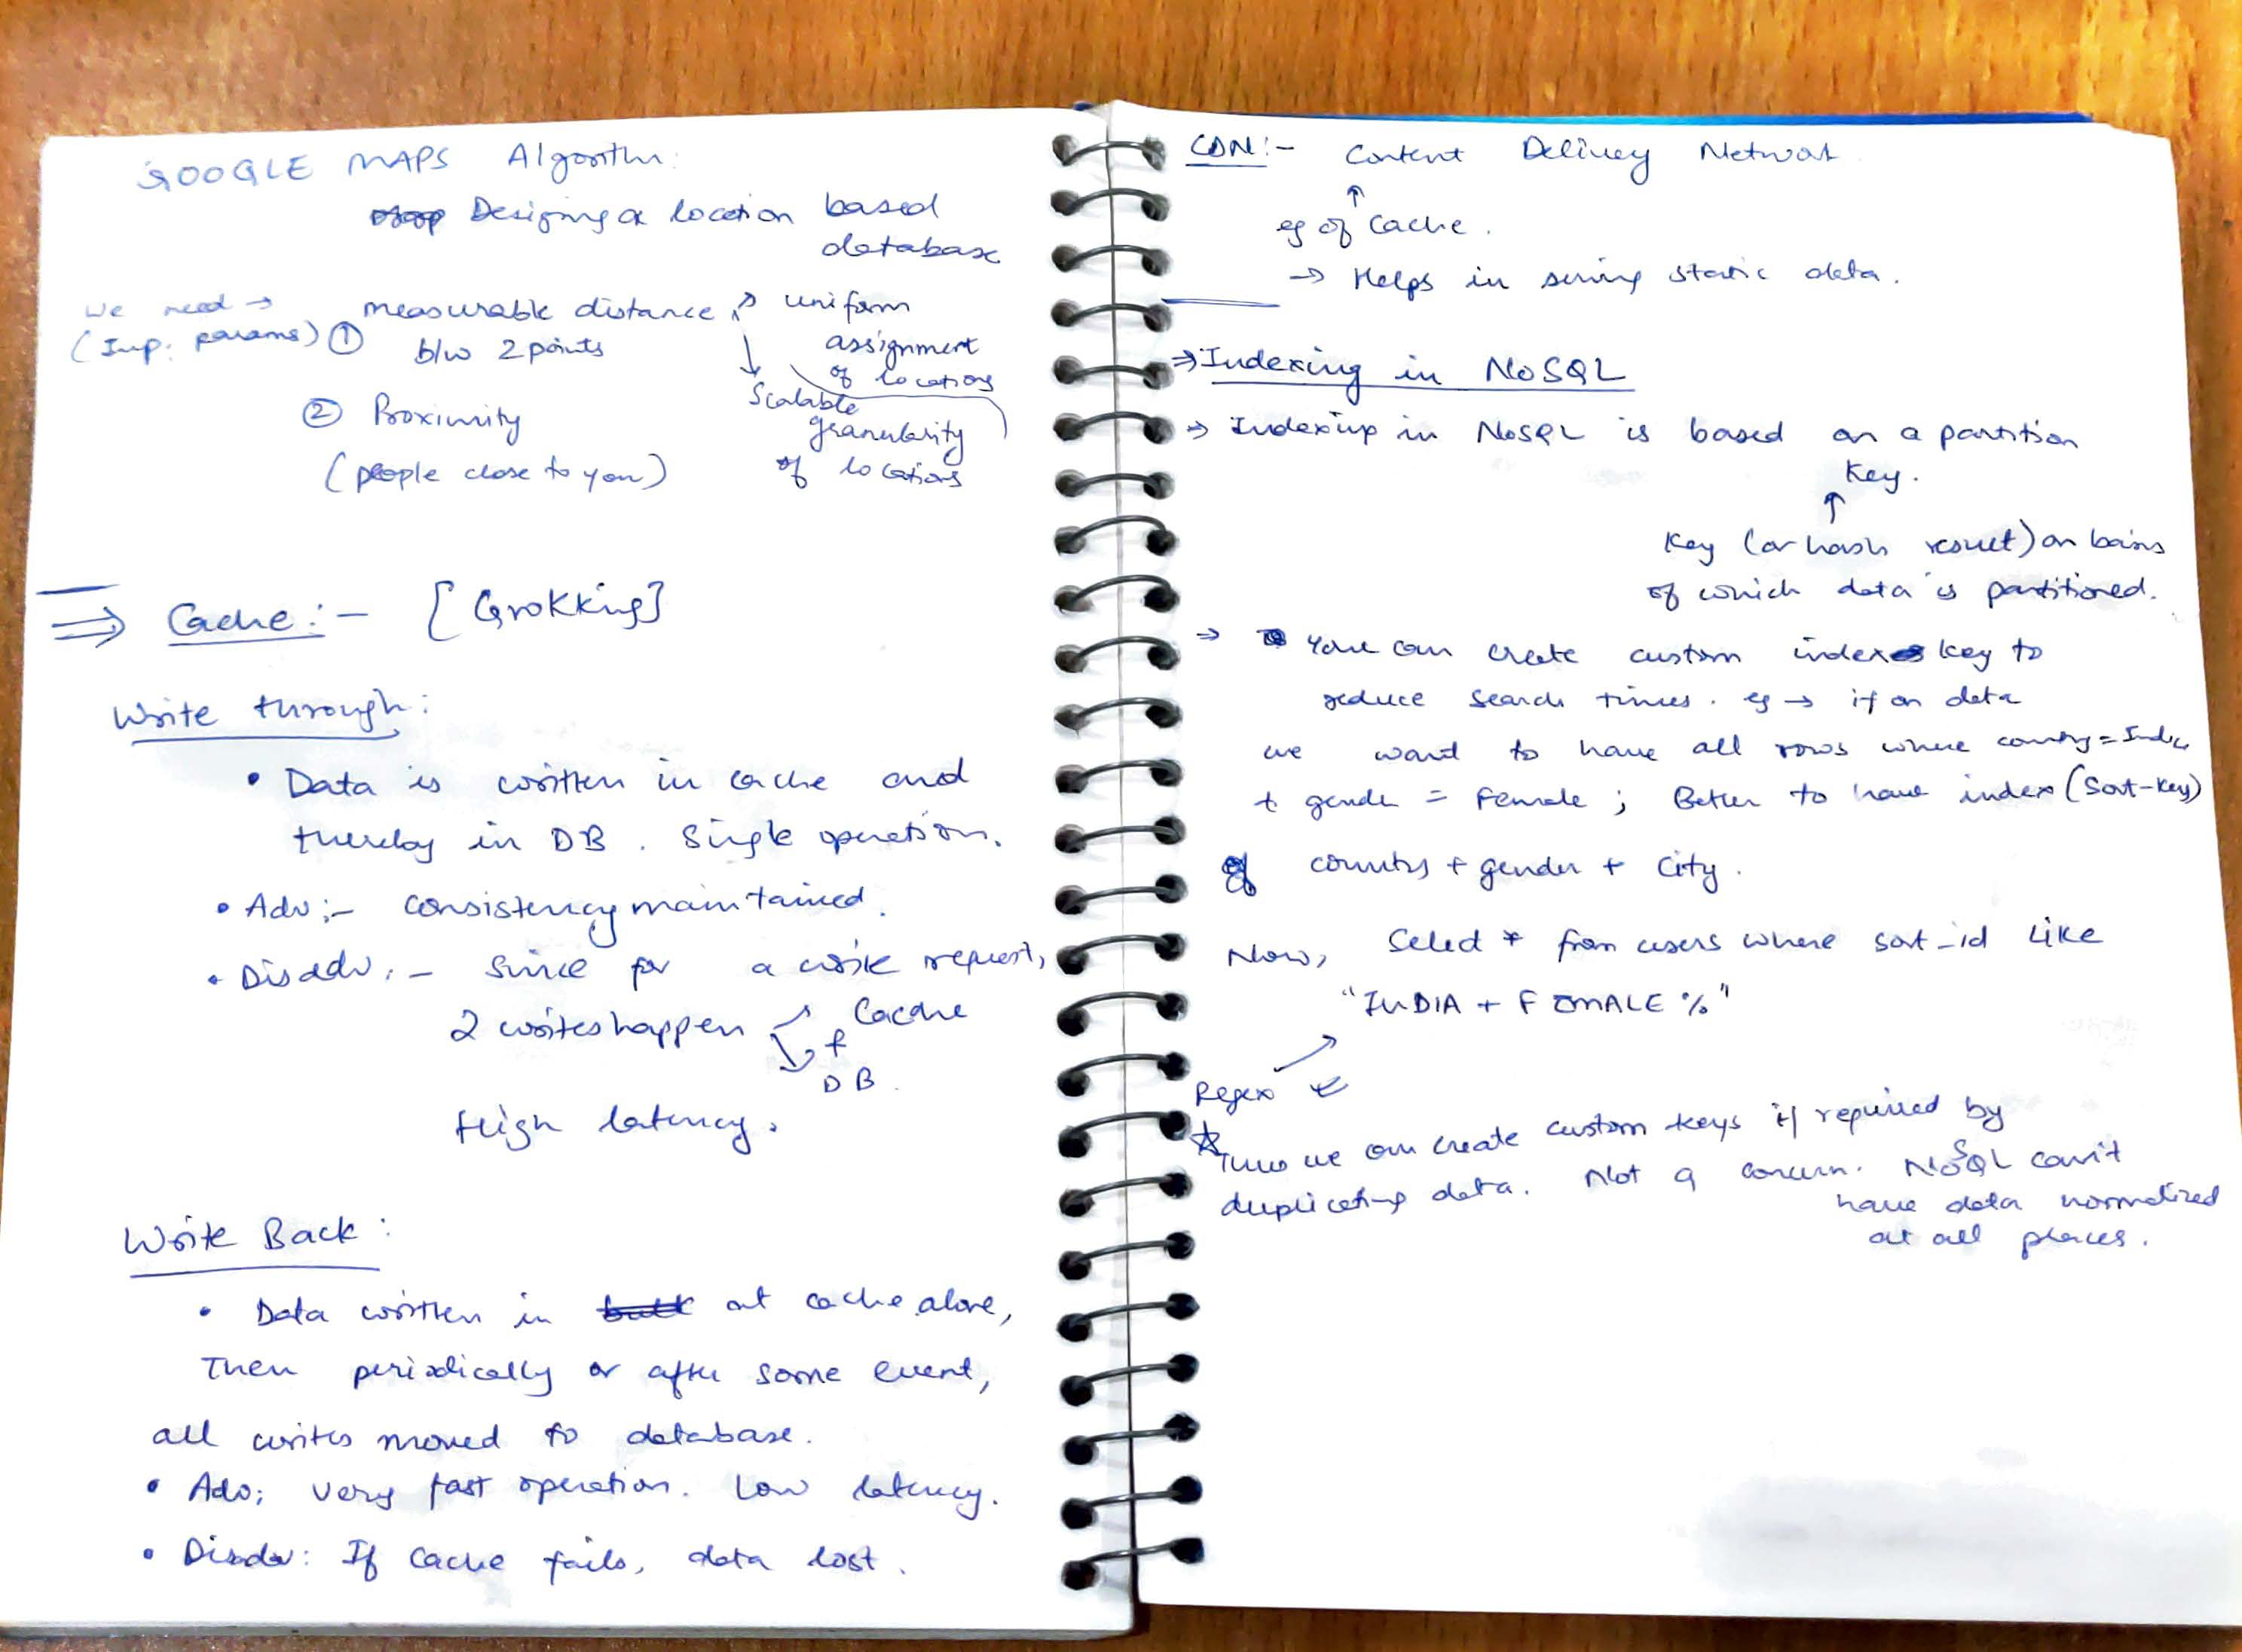 GOOGLE MAPS Algorithm:
Designing a location based
database
We need → measurable distance
(Imp. params) ① b/w 2 points
uniform
assignment
of locations
Scalable
granularity
of locations
② Proximity
(people close to you)
⇒ Cache:- [Grokking]
Write through:
• Data is written in cache and
thereby in DB. Single operation.
• Adv:- consistency maintained.
• Disadv:- Since for a write request,
2 writes happen Cache
+
DB.
High latency.
Write Back:
• Data written in at cache alone,
Then periodically or after some event,
all writes moved to database.
• Adv: very fast operation. Low latency.
• Disadv: If cache fails, data lost.
CDN:- Content Delivery Network
↑
eg of cache.
→ Helps in serving static data.
⇒ Indexing in NoSQL
→ Indexing in NoSQL is based on a partition
key.
↑
Key (or hash result) on basis
of which data is partitioned.
→ You can create custom index key to
reduce search times. eg → if on data
we want to have all rows where country = India
+ gender = Female ; Better to have index (Sort-key)
of country + gender + city.
Now, Select * from users where sort_id LIKE
"INDIA + FEMALE %"
Regex
☆ Thus we can create custom keys if required by
duplicating data. Not a concern. NoSQL can't
have data normalized
at all places.